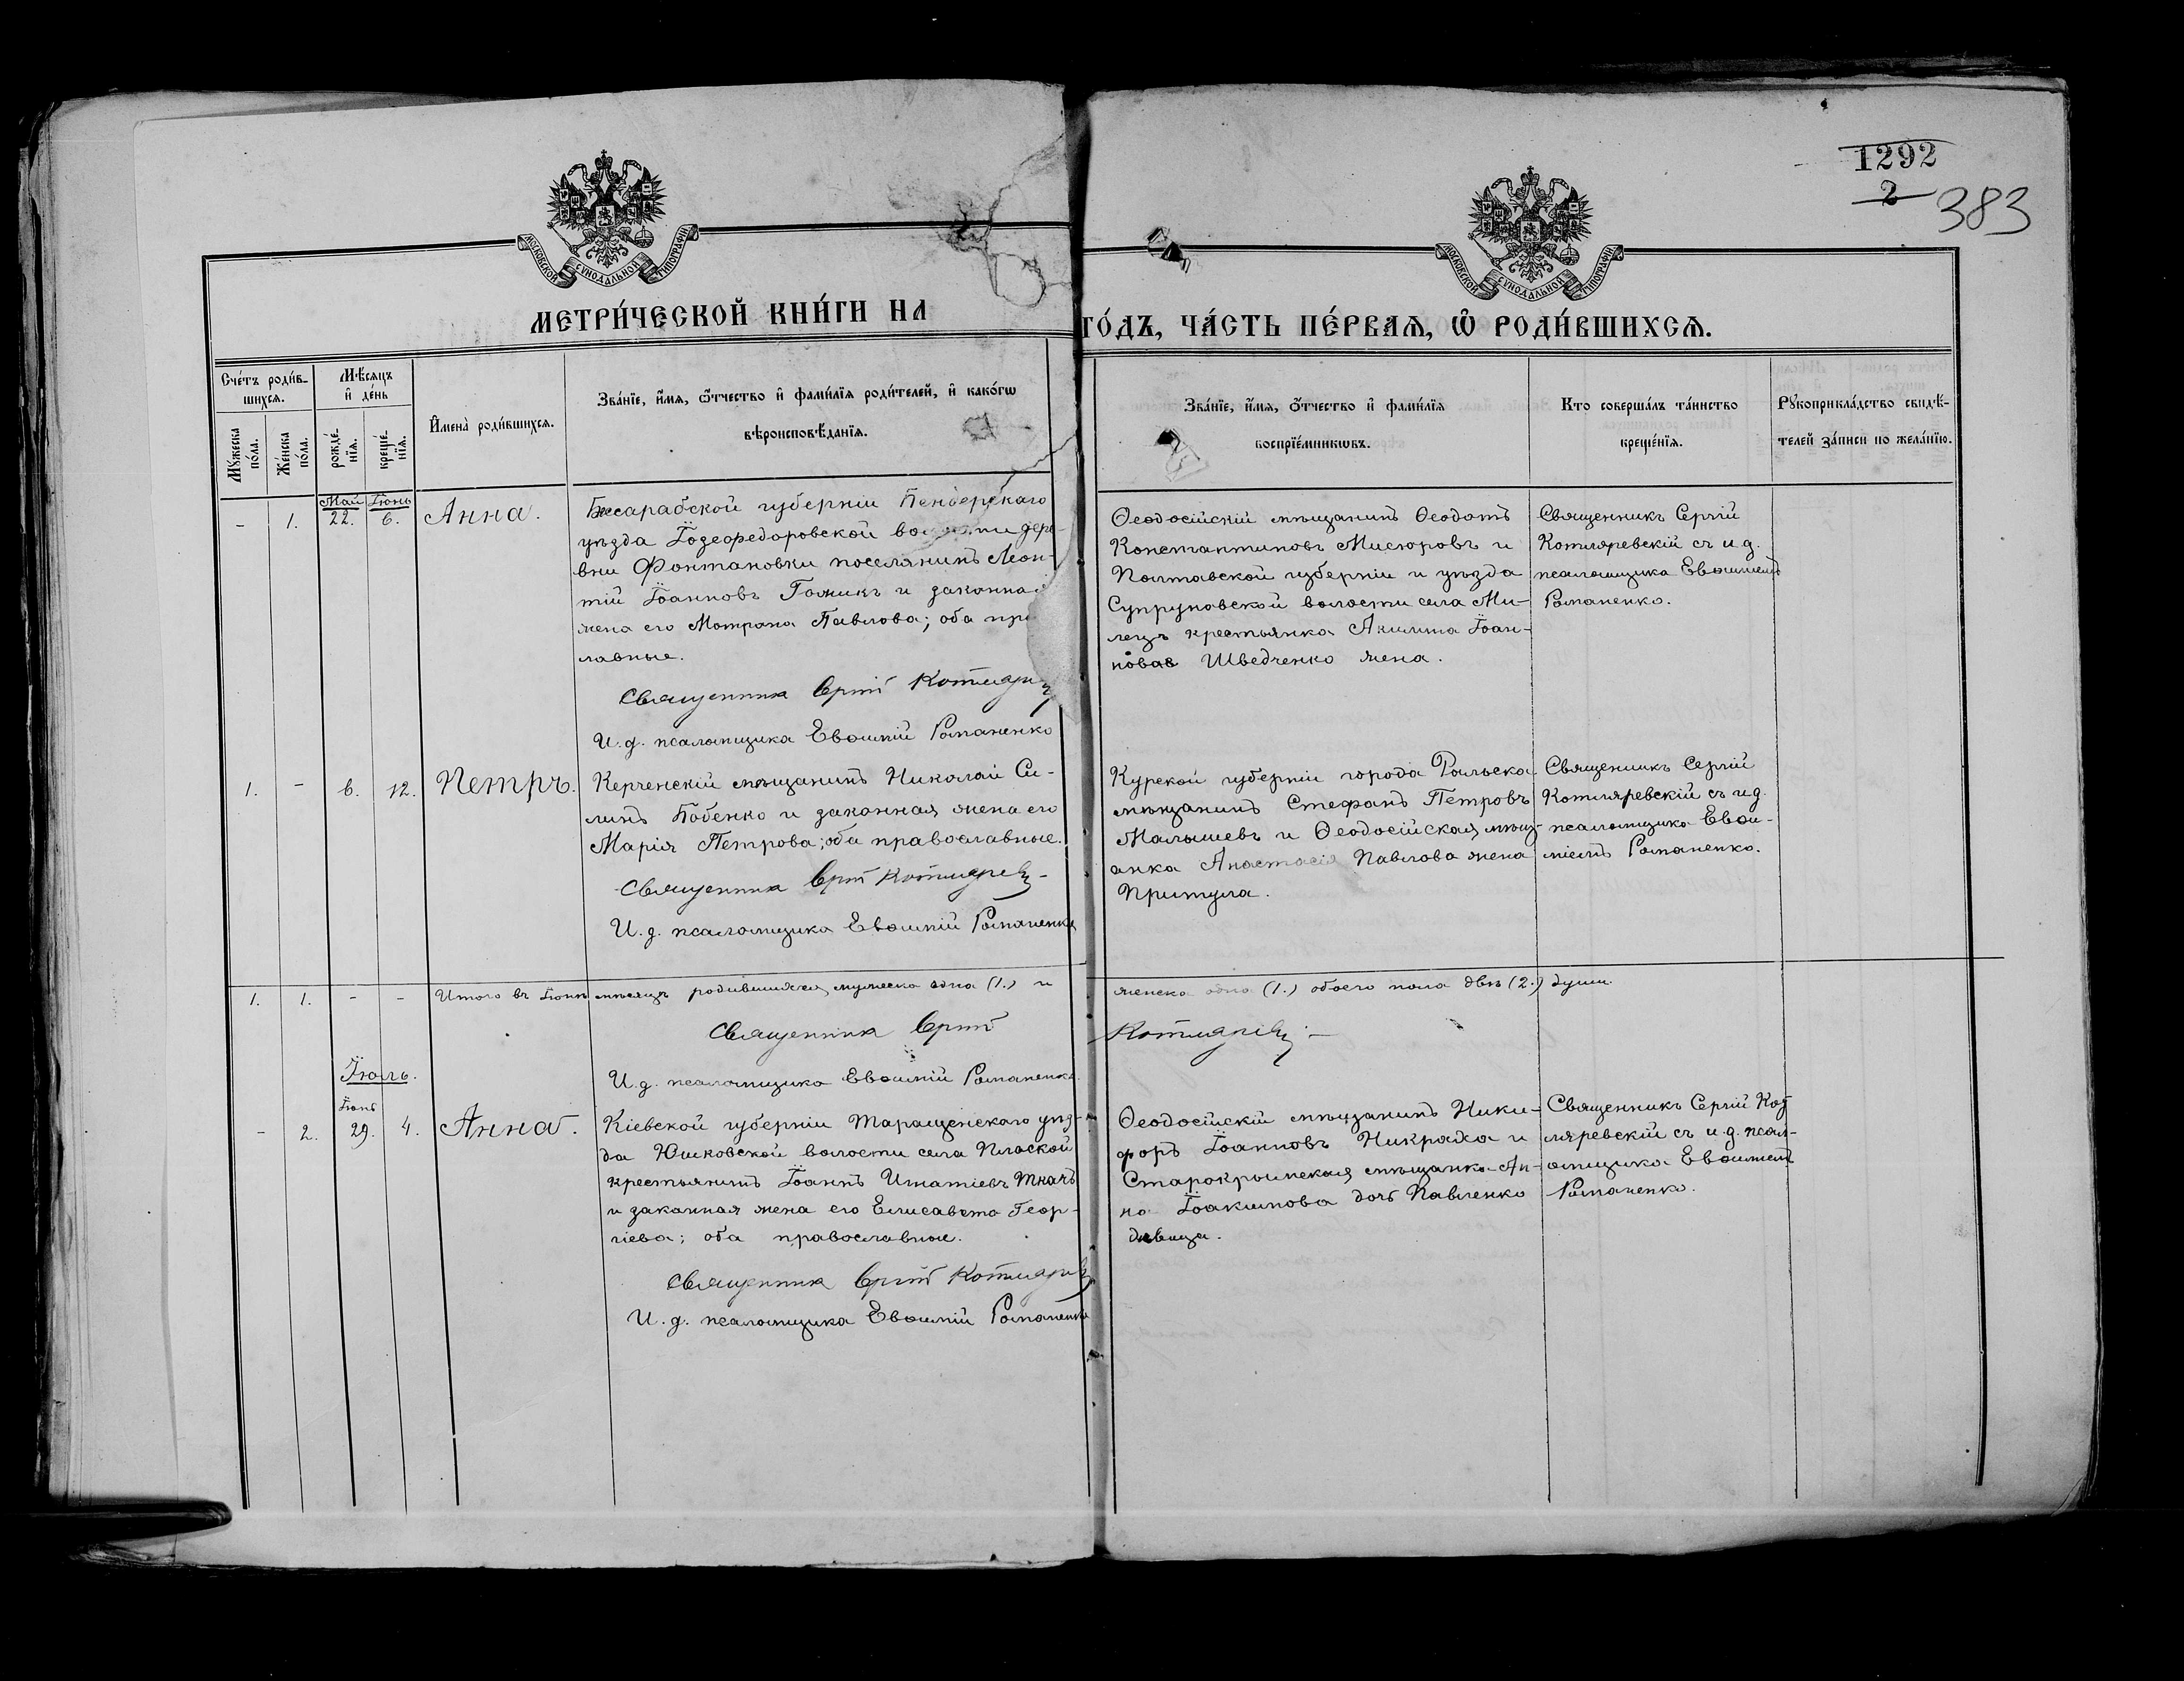 1292
2
383
МОСКОВСКОЙ СУНОДАЛЬНОЙ ТИПОГРАФІИ
МОСКОВСКОЙ СУНОДАЛЬНОЙ ТИПОГРАФІИ
МЕТРИ́ЧЕСКОЙ КНИ́ГИ НА
ГО́ДЪ, ЧА́СТЬ ПЕ́РВАѦ, Ѽ РОДИ́ВШИХСѦ.
Сче́тъ роди́в-
шихсѧ.
Мѣ́сѧцъ
и҆ де́нь
Мꙋ́жеска
по́ла.
Же́нска
по́ла.
рожде́-
нїѧ.
креще́-
нїѧ.
И҆мена̀ роди́вшихсѧ.
Зва́нїе, и҆́мѧ, ѻ҆́тчество и҆ фами́лїѧ роди́телей, и҆ како́гѡ
вѣроисповѣ́данїѧ.
Зва́нїе, и҆́мѧ, ѻ҆́тчество и҆ фами́лїѧ
воспрїе́мникѡвъ.
Кто соверша́лъ та́инство
креще́нїѧ.
Рꙋкоприкла́дство свидѣ́-
телей за́писи по жела́нїю.
Май Іюнь
- 1. 22. 6. Анна.
Бессарабской губерніи Бендерскаго
уѣзда Іозеофедоровской дере-
вни Фонтановки поселянинъ Леон-
тій Іоанновъ Гомикъ и законная
жена его Мотрона Павлова; оба пра
лавные.
Священник Сергій Котляре
И.д. псаломщика Евѳимій Романенко
Ѳеодосійскій мѣщанинъ Ѳеодотъ
Константиновъ Мисюровъ и
Полтавской губерніи и уѣзда
Супруновской волости села Ми-
лецъ крестьянка Акилина Іоан-
нова Шведченко жена.
Священникъ Сергій
Котляревскій съ и.д.
псаломщика Евѳиміемъ
Романенко.
1. - 6. 12. Петръ.
Керченскій мѣщанинъ Николай Си-
линъ Бобенко и законная жена его
Марія Петрова; оба православные.
Священник Сергій Котляревскій
И.д. псаломщика Евѳимій Романенко
Курской губерніи города Рыльска
мѣщанинъ Стефанъ Петровъ
Малышевъ и Ѳеодосійская мѣщ-
анка Анастасія Павлова жена
Притула.
Священникъ Сергій
Котляревскій съ и.д.
псаломщика Евѳи-
міемъ Романенко.
1. 1. - - Итого въ Іюнѣ мѣсяцѣ родившихся мужеска одна (1.) и
женска одна (1.) обоего пола двѣ (2.) души.
Священник Сергій
Котляревскій
И.д. псаломщика Евѳимій Романенко.
Іюль.
Іюнь
- 2. 29. 4. Анна.
Кіевской губерніи Таращенскаго уѣз-
да Юшковской волости села Плоской
крестьянинъ Іоаннъ Игнатіевъ Ткачъ
и законная жена его Елисавета Геор-
гіева; оба православные.
Священник Сергій Котляревскій
И.д. псаломщика Евѳимій Романенко
Ѳеодосійскій мѣщанинъ Ники-
форъ Іоанновъ Никраха и
Старокрымская мѣщанка Ан-
на Іоакимова дочь Павленко
дѣвица.
Священникъ Сергій Кот
ляревскій съ и.д. псал-
омщика Евѳиміемъ
Романенко.